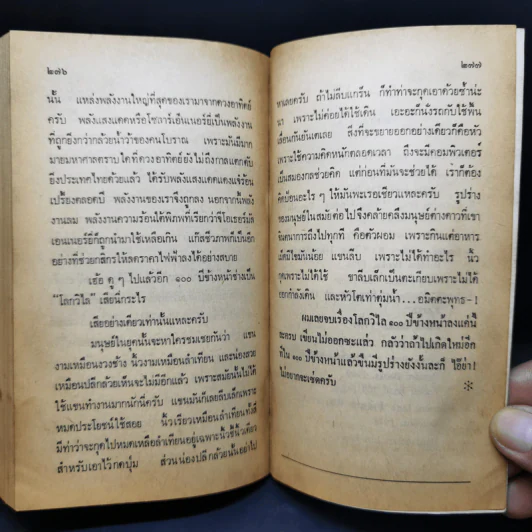 ๒๗๖
นั้น แหล่งพลังงานใหญ่ที่สุดของเรามาจากดวงอาทิตย์
ครับ พลังแสงแดดหรือโซลาร์เอ็นเนอร์ยี่เป็นพลังงาน
ที่ถูกยิ่งกว่ากล้วยน้ำว้าของคนโบราณ เพราะมันมีมาก
มายมหาศาลตราบใดที่ดวงอาทิตย์ยังไม่ถึงกาลแตกดับ
ยิ่งประเทศไทยด้วยแล้ว ได้รับพลังแสงแดดแดงแจ๋ร้อน
เปรี้ยงตลอดปี พลังงานของเราจึงถูกลง นอกจากนี้พลัง
งานลม พลังงานความร้อนใต้พิภพที่เรียกว่าจีโอเธอร์มัล
เอนเนอร์ยี่ก็ถูกนำมาใช้เหลือเกิน แก๊สชีวภาพก็เป็นอีก
อย่างที่ช่วยสกัดให้ลดราคาไฟฟ้าลงได้อย่างสบาย
เฮ้อ ดู ๆ ไปแล้วอีก ๑๐๐ ปีข้างหน้าช่างเป็น
“โลกวิไล” เสียนี่กระไร
เสียอย่างเดียวเท่านั้นแหละครับ
มนุษย์ในยุคนั้นจะหาใครชมเชยกันว่า แขน
งามเหมือนงวงช้าง นิ้วงามเหมือนลำเทียน และน่องสวย
เหมือนปลีกล้วยเห็นจะไม่มีอีกแล้ว เพราะสมัยนั้นไม่ได้
ใช้แขนทำงานมากนักนี่ครับ แขนมันก็เลยลีบเล็กเพราะ
หมดประโยชน์ใช้สอย นิ้วเรียวเหมือนลำเทียนทั้งสี่
มีท่าว่าจะกุดไปหมดเหลือลำเทียนอยู่เฉพาะนิ้วชี้นิ้วเดียว
สำหรับเอาไว้กดปุ่ม ส่วนน่องปลีกล้วยนั้นอย่าไป
๒๗๗
หาเลยครับ ถ้าไม่ลีบแกร็น ก็ทำท่าจะกุดเอาด้วยซ้ำน่ะ
เพราะไม่ค่อยได้ใช้เดิน เอะอะก็นั่งรถกับใช้พื้น
เลื่อนกันยันเตเลย สิ่งที่จะขยายออกอย่างเดียวก็คือหัว
เพราะใช้ความคิดหนักตลอดเวลา ถึงจะมีคอมพิวเตอร์
เป็นสมองกลช่วยคิด แต่ก่อนที่มันจะช่วยได้ เราก็ต้อง
คิดป้อนอะไร ๆ ให้มันพะเรอเชียวแหละครับ รูปร่าง
ของมนุษย์ในสมัยต่อไปจึงคล้ายคลึงมนุษย์ต่างดาวที่เขา
จินตนาการถึงไปทุกที คือตัวผอม เพราะกินแต่อาหาร
เม็ดไม่มันน้อย แขนลีบ เพราะไม่ได้ทำอะไร นิ้ว
กุดเพราะไม่ได้ใช้ ขาลีบเล็กเป็นตะเกียบเพราะไม่ได้
ออกกำลังเดิน และหัวโตเท่าตุ่มน้ำ...อนิตตะพุทธ-!
ผมเลยจบเรื่องโลกวิไล ๑๐๐ ปีข้างหน้าลงแค่นี้
นะครับ เขียนไม่ออกซะแล้ว กลัวว่าถ้าไปเกิดใหม่อีก
ทีใน ๑๐๐ ปีข้างหน้าแล้วขืนมีรูปร่างยังงั้นละก็ ไอ๊ย่า!
ไม่อยากจะเซดครับ